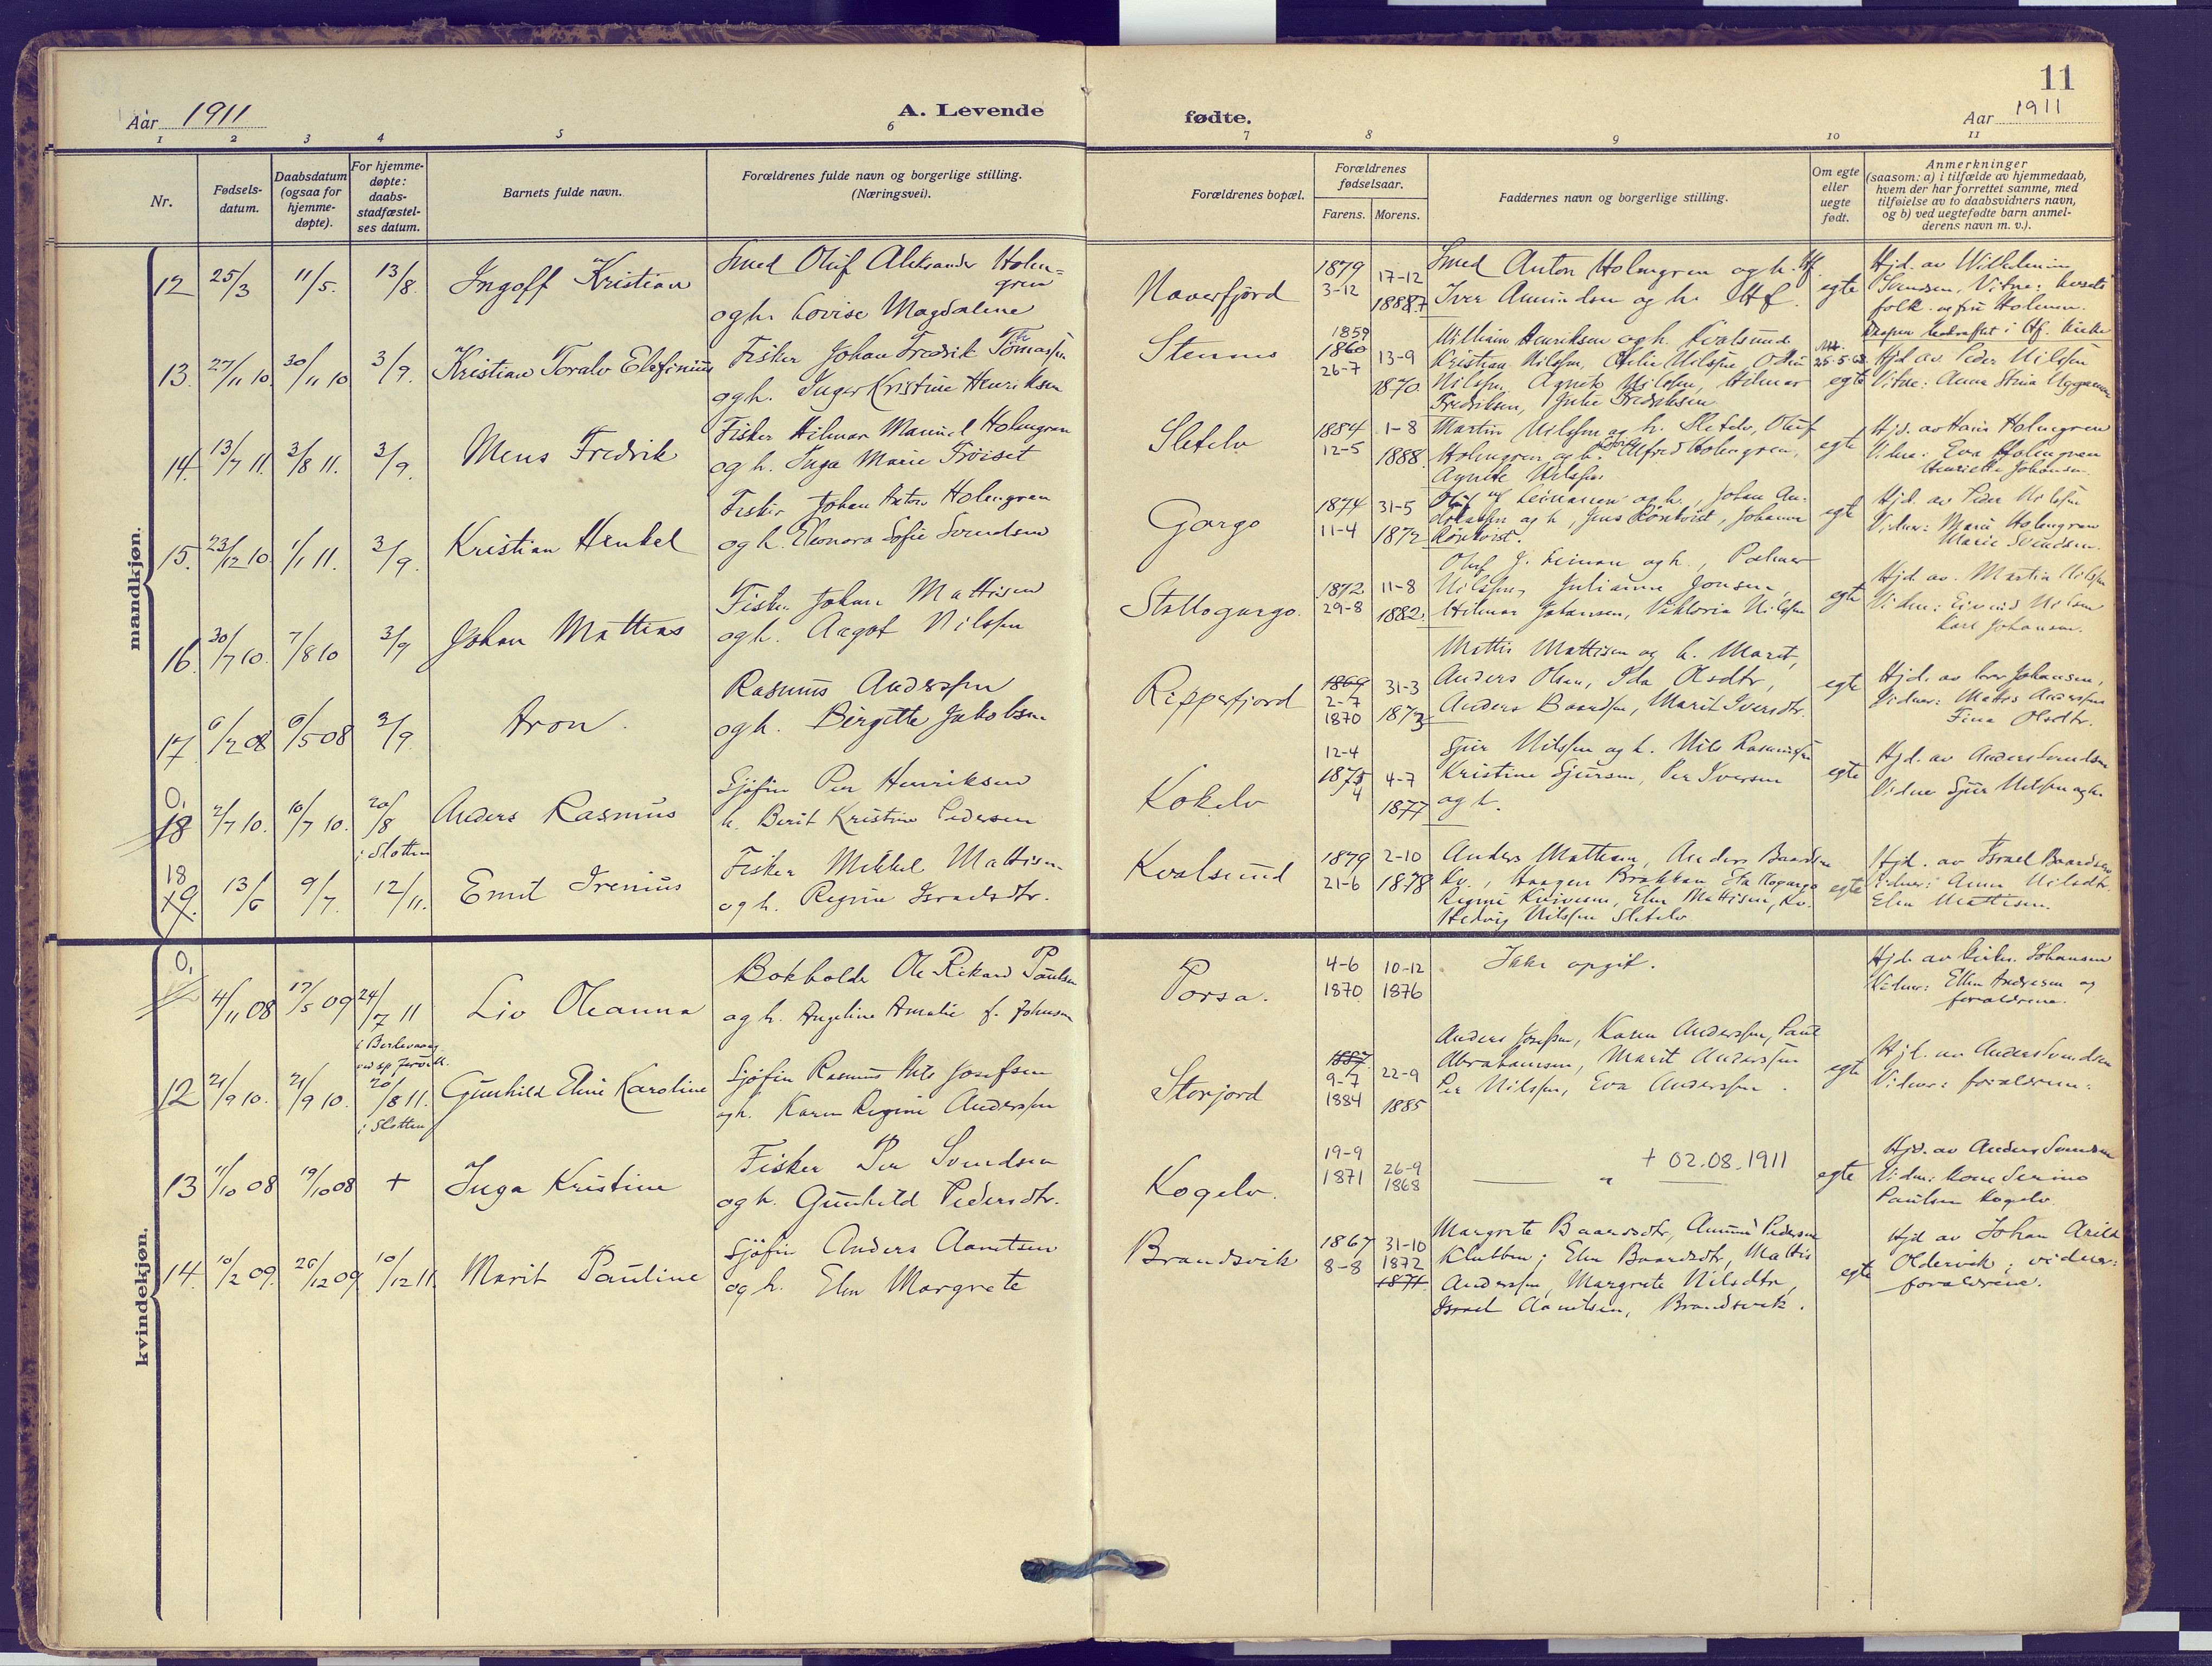 11
Aar 1911
A. Levende
fødte.
Aar 1911
1 2 3 4 5 6 7 8 9 10 11
Nr.
Fødsels-
datum.
Daabsdatum
(ogsaa for
hjemme-
døpte).
For hjemme-
døpte:
daabs-
stadfæstel-
ses datum.
Barnets fulde navn.
Forældrenes fulde navn og borgerlige stilling.
(Næringsvei).
Forældrenes bopæl.
Forældrenes
fødselsaar.
Farens. Morens.
Faddernes navn og borgerlige stilling.
Om egte
eller
uegte
født.
Anmerkninger
(saasom: a) i tilfælde av hjemmedaab,
hvem der har forrettet samme, med
tilføielse av to daabsvidners navn,
og b) ved uegtefødte barn anmel-
derens navn m. v.).
mandkjøn.
12 25/3 11/5. 13/8. Ingolf Kristian
Smed Oluf Aleksander Holm=
gren
og h. Lovise Magdalene
Naverfjord
1879
3-12
17-12
1888
Smed Anton Holmgren og h. Hf.
Iver Amundsen og h. Hf.
egte
Hjd. av
13. 27/11 10 30/11 10 3/9. Kristian Toralv Elefinius
Fisker Johan Fredrik Tomassen
og h. Inger Kristine Henriksen
Stennes
1859
1860
26-7
13-9
1870
William Henriksen og h. Kvalsund
Kristian Nilssen,
Nilssen, Agnete Nilssen, Hilmar
Fredriksen, Julie Fredriksen
egte
Hjd. av Peder Nilssen
14. 13/7 11. 3/8 11. 3/9. Mens Fredrik
Fisker Hilmar Manuel Holmgren
og h. Inga Marie Trøiset
Sletelv
1884
12-5
1-8
1888.
Martin Nilssen og h. Sletelv, Oluf
Holmgren og h. Alfred Holmgren,
Agnete Nilssen
egte
Hjd. av Hans Holmgren
Vidne: Eva Holmgren
Henriette Johansen.
15. 23/12 10. 1/1 11. 3/9. Kristian Henkel
Fisker Johan Anton Holmgren
og h. Eleonora Sofie Svendsen
Gargo
1874
11-4
31-5
1872
egte
Hjd. av Peder Nilssen
Vidner: Marie Holmgren
Marie Svendsen.
16. 30/7 10. 7/8 10 3/9 Johan Mattias
Fisker Johan Mattisen
og h. Aagot Nilssen
Stallogargo.
1872
29-8
11-8
1882.
Nilssen, Julianne Jonsen,
Hilmar Johansen, Viktoria Nilssen
egte
Hjd. av. Martin Nilssen
Vidner: Eivind Nilsen
Karl Johansen.
17. 6/2 08 6/5 08 3/9. Aron.
Rasmus Anderssen
og h. Birgitte Jakobsen
Repperfjord
1869
2-7
1870
31-3
1873
Mattis Mattisen og h. Marit,
Anders Olsen, Ida Olsdtr,
Anders Baardsen, Marit Iversdtr.
egte
Hjd. av Iver Johansen,
Vidner: Mattis Anderssen
Fina Olsdtr.
0,
18 2/7 10. 10/7 10. 20/8
i Slotten
Anders Rasmus
Sjøfin Per Henriksen
h. Berit Kristine Pedersen
Kokelv
12-4
1875
4
4-7
1877
Sjur Nilssen og h. Nils Rasmussen
Kristine Sjursen, Per Iversen
og h.
egte
Hjd. av Anders Svendsen
Vidne Sjur Nilssen og h.
18
19. 13/6 9/7. 12/11. Emil Irenius
Fisker Mikkel Mattisen
og h. Regine Israelsdtr.
Kvalsund
1879
21-6
2-10
1878
Anders Mattisen, Anders Baardsen
Kv., Haagen Brakkan Stallogargo
Regine Kvivesen, Elen Mattisen, Kv.
Hedvig Nilssen Sletelv
egte
Hjd. av Israel Baardsen
Vidner: Anna Nilsdtr.
Elen Mattisen.
kvindekjøn.
0,
4/11 08 17/5 09 24/7 11
i Berlevaag
Liv Oleanna
Bokholder Ole Rikard Paulsen
og h. Angeline Amalie f. Johnsen
Porsa.
4-6
1870
10-12
1876
Ikke opgit.
Vidner: Ellen Andresen og
forældrene.
12 21/9 10. 21/9 10. 20/8 11.
i Slotten
Gunhild Eline Karoline
Sjøfin Rasmus Nils Josefsen
og h. Karen Regine Anderssen
Storjord
1887
9-7
1884
22-9
1885
Anders Josefsen, Karen Anderssen, Paul
Abrahamsen, Marit Anderssen
Per Nilssen, Eva Anderssen.
egte
Hjd. av Anders Svendsen
Vidner: forældrene.
13 11/10 08 19/10 08 + Inga Kristine
Fisker Per Svendsen
og h. Gunhild Pedersdtr.
Kogelv.
19-9
1871
26-9
1868
" + 02.08.1911
egte
Hjd. av Anders Svendsen
Paulsen Kogelv.
14. 10/2 09. 26/12 09 10/12 11. Marit Pauline
Sjøfin Anders Aamtsen
og h. Elen Margrete
Brandsvik
1867
8-8
31-10
1872
1871
Margrete Baardsdtr, Amund Pedersen
Klubben; Elen Baardsdtr, Mattis
Anderssen, Margrete Nilsdtr,
Israel Aamtsen, Brandsvik.
egte
Hjd av Johan Arild
Oldervik; vidner:
forældrene.